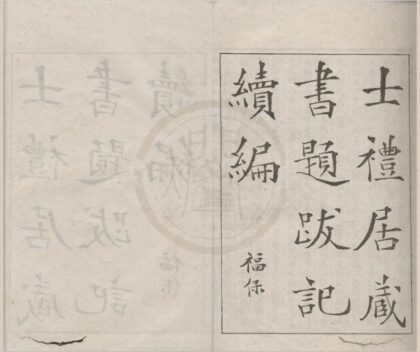 士禮居蔵
書題跋記
續編
福保